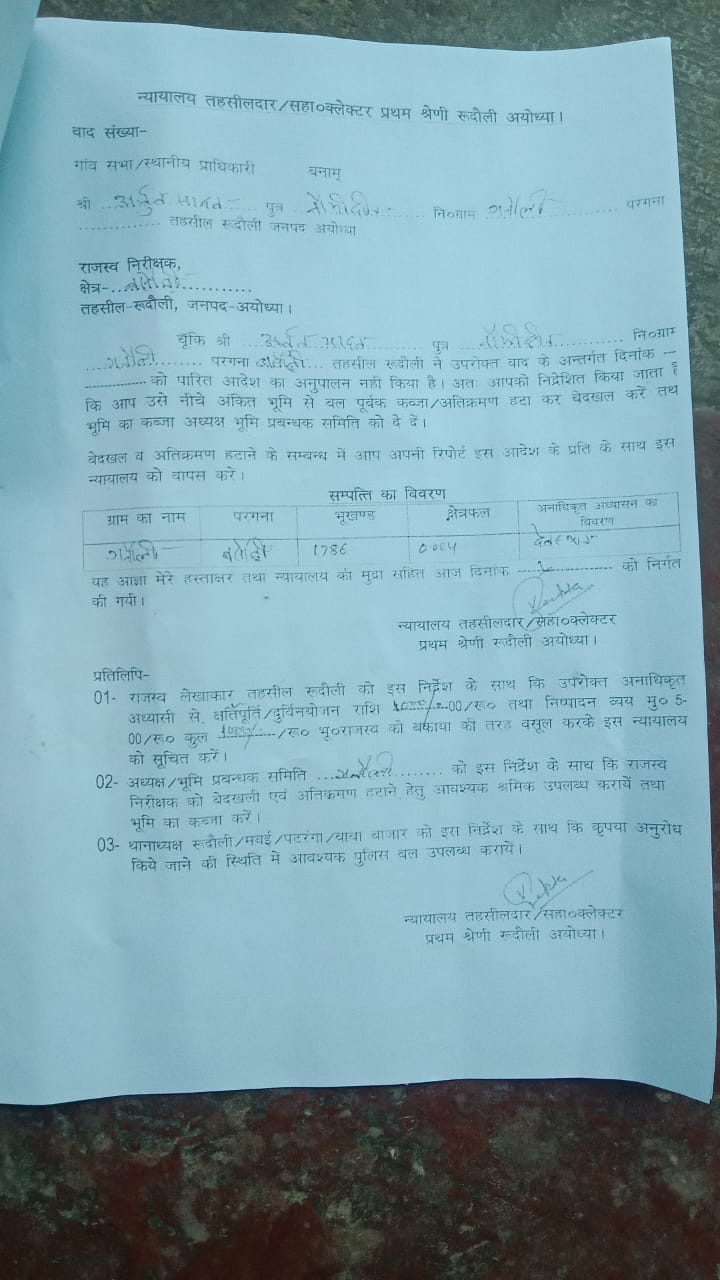 न्यायालय तहसीलदार/सहा०क्लेक्टर प्रथम श्रेणी रूदौली अयोध्या।
वाद संख्या-
गांव सभा/स्थानीय प्राधिकारी बनाम्
श्री ... पुत्र ... नि०ग्राम ... परगना
.............. तहसील रूदौली जनपद अयोध्या
राजस्व निरीक्षक,
क्षेत्र-...
तहसील-रूदौली, जनपद-अयोध्या।
चूंकि श्री ... पुत्र ... नि०ग्राम
... परगना ... तहसील रूदौली ने उपरोक्त वाद के अन्तर्गत दिनांक ---
-------------- को पारित आदेश का अनुपालन नही किया है। अतः आपको निद्रेशित किया जाता है
कि आप उसे नीचे अंकित भूमि से बल पूर्वक कब्जा/अतिक्रमण हटा कर बेदखल करें तथ
भूमि का कब्जा अध्यक्ष भूमि प्रबन्धक समिति को दे दें।
बेदखल व अतिक्रमण हटाने के सम्बन्ध में आप अपनी रिपोर्ट इस आदेश के प्रति के साथ इस
न्यायालय को वापस करें।
सम्पत्ति का विवरण
ग्राम का नाम परगना भूखण्ड क्षेत्रफल अनाधिकृत अध्यासन का
विवरण
1786 0.004
यह आज्ञा मेरे हस्ताक्षर तथा न्यायालय की मुद्रा सहित आज दिनांक ------------------ को निर्गत
की गयी।
न्यायालय तहसीलदार/सहा०क्लेक्टर
प्रथम श्रेणी रूदौली अयोध्या।
प्रतिलिपि-
01- राजस्व लेखाकार तहसील रूदौली को इस निर्द्रेश के साथ कि उपरोक्त अनाधिकृत
अध्यासी से क्षतिपूर्ति/दुर्विनयोजन राशि ...00/रू० तथा निष्पादन व्यय मु० 5-
00/रू० कुल .../रू० भू०राजस्व को बकाया की तरह वसूल करके इस न्यायालय
को सूचित करें।
02- अध्यक्ष/भूमि प्रबन्धक समिति ... को इस निर्देश के साथ कि राजस्व
निरीक्षक को बेदखली एवं अतिक्रमण हटाने हेतु आवश्यक श्रमिक उपलब्ध करायें तथा
भूमि का कब्जा करें।
03- थानाध्यक्ष रूदौली/मवई/पटरंगा/बाबा बाजार को इस निर्द्रेश के साथ कि कृपया अनुरोध
किये जाने की स्थिति में आवश्यक पुलिस बल उपलब्ध करायें।
न्यायालय तहसीलदार/सहा०क्लेक्टर
प्रथम श्रेणी रूदौली अयोध्या।